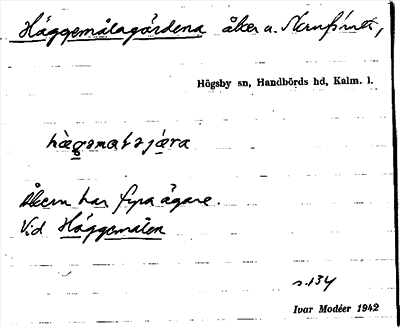 Häggemålagärdena åker u. Skrufshult,
Högsby sn, Handbörds hd, Kalm. l.
Åkern har fyra ägare.
Vid Häggemålen
s. 134
Ivar Modéer 1942